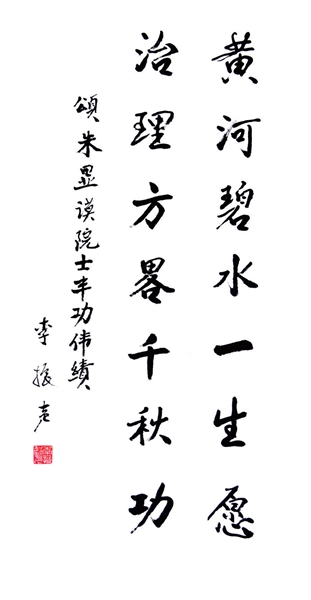 黄河碧水一生愿
治理方畧千秋功
頌朱显谟院士丰功伟績
李振声